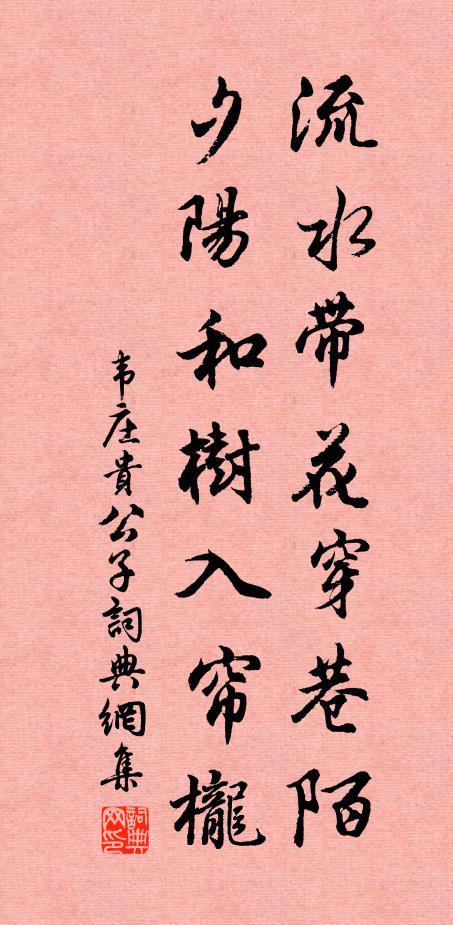 流水帶花穿巷陌
夕陽和樹入帘櫳
韦庄貴公子詞典網集
詞典网印